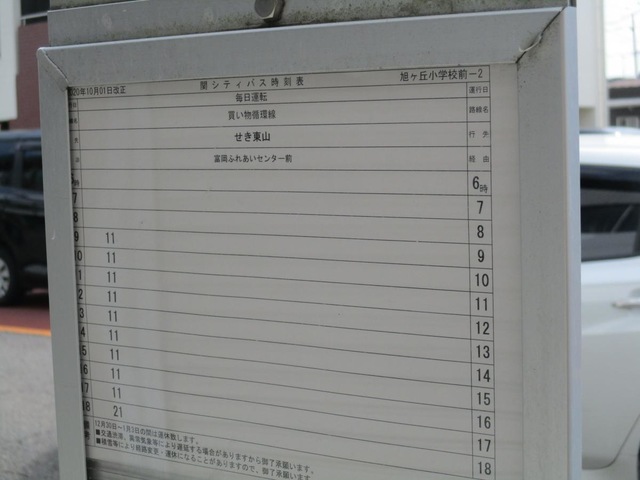 20年10月01日改正 関シティバス時刻表 旭ヶ丘小学校前-2
毎日運転 運行日
買い物循環線 路線名
せき東山 行先
富岡ふれあいセンター前 経由
6時
7 7
8 8
9 11 9
10 11 10
11 11 11
12 11 12
13 11 13
14 11 14
15 11 15
16 11 16
17 11 17
18 21 18
12月30日～1月3日の間は運休致します。
■交通渋滞、異常気象等により遅延する場合がありますから御了承願います。
■積雪等により経路変更・運休になることがありますので、御了承願います。